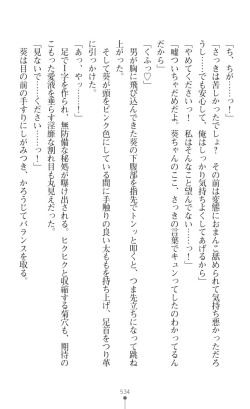 「ち、ちが……っ！」
「さっきは苦しかったでしょ？　その前は変態におまんこ舐められて気持ち悪かっただろ
うし……でも安心して、俺はしっかり気持ちよくしてあげるから」
「やめてくださいっ！　私はそんなこと望んでない……っ！」
「嘘ついちゃだめだよ。葵ちゃんのここ、さっきの言葉でキュンってしたのわかってるん
だから」
「くふっ♡」
　男が胸に飛び込んできた葵の下腹部を指先でトンッと叩くと、つま先立ちになって跳ね
上がった。
　そして葵が頭をピンク色にしている間に手触りの良い太ももを持ち上げ、足首をつり革
に引っかけた。
「あっ、やッ……！」
　足でI字を作られ、無防備な秘処が曝け出される。ヒクヒクと収縮する菊穴も、期待の
こもった愛液を垂らす淫靡な割れ目も丸見えだ。
「見ないで……ください……っ！」
　葵は目の前の手すりにしがみつき、かろうじてバランスを取る。
534